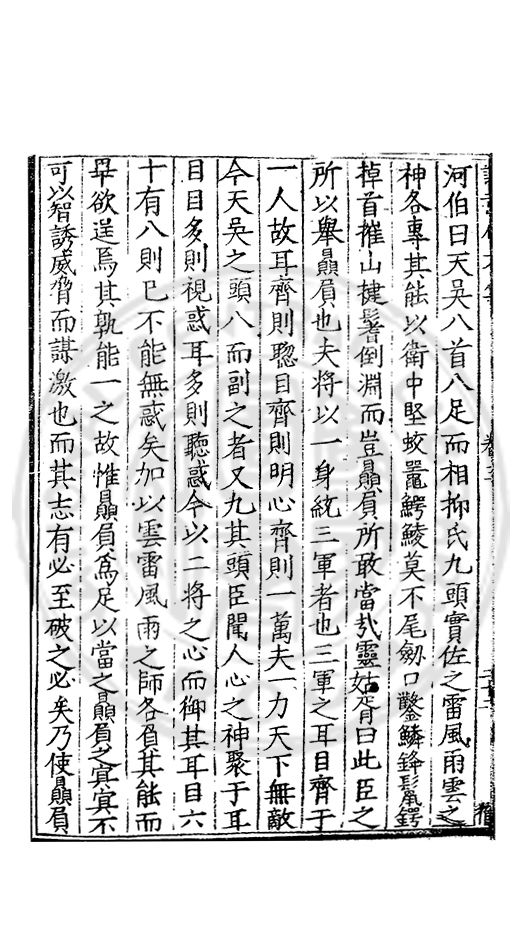 河伯曰天吳八首八足而相抑氏九頭實佐之雷風雨雲之
神各專其能以衛中堅蛟鼉鰐鯪莫不尾劒口鑿鱗鋒鬛鍔
掉首摧山揵鬐倒淵而豈贔屓所敢當㢤靈姑胥曰此臣之
所以舉贔屓也夫將以一身統三軍者也三軍之耳目齊于
一人故耳齊則聦目齊則明心齊則一萬夫一力天下無敵
今天吳之頭八而副之者又九其頭臣聞人心之神聚于耳
目目多則視惑耳多則聽惑今以二將之心而御其耳目六
十有八則已不能無惑矣加以雲雷風雨之師各負其能而
畢欲逞焉其孰能一之故惟贔屓爲足以當之贔屓之冥冥不
可以智誘威脅而謀激也而其志有必至破之必矣乃使贔屓